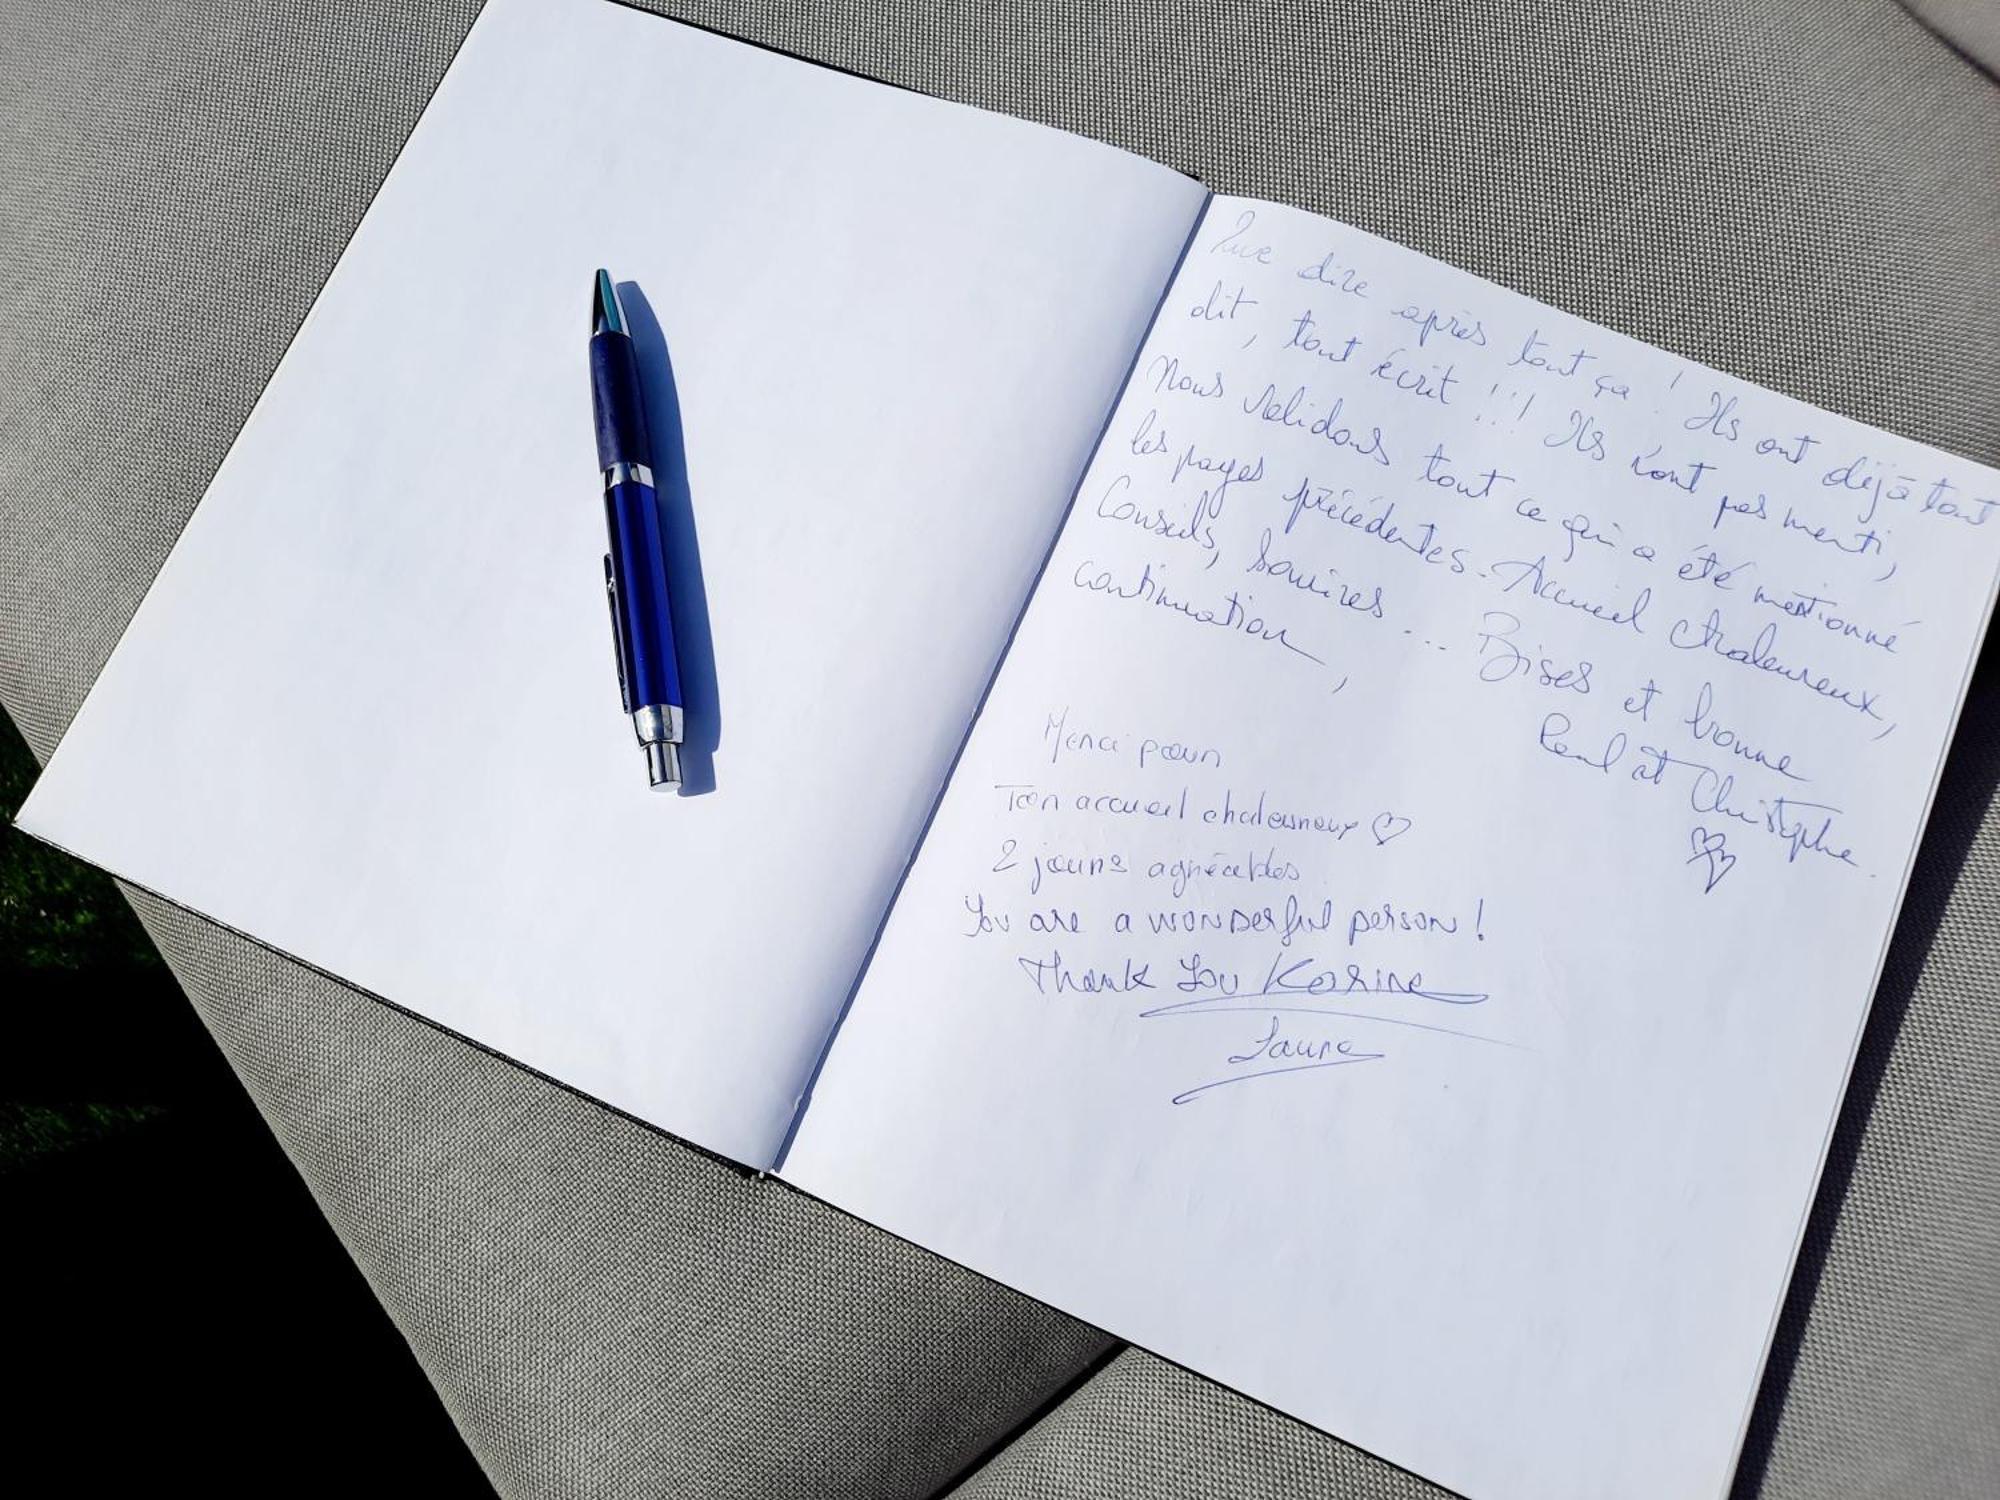 Que dire après tout ça ! Ils ont déjà tout
dit, tout écrit !!! Ils n'ont pas menti,
Nous validons tout ce qui a été mentionné
les pages précédentes. Accueil chaleureux,
Conseils, sourires ... Bises et bonne
continuation,
Paul et Christophe.
Merci pour
Ton accueil chaleureux ♡
2 jours agréables
You are a wonderful person!
Thank You Karine
Laure